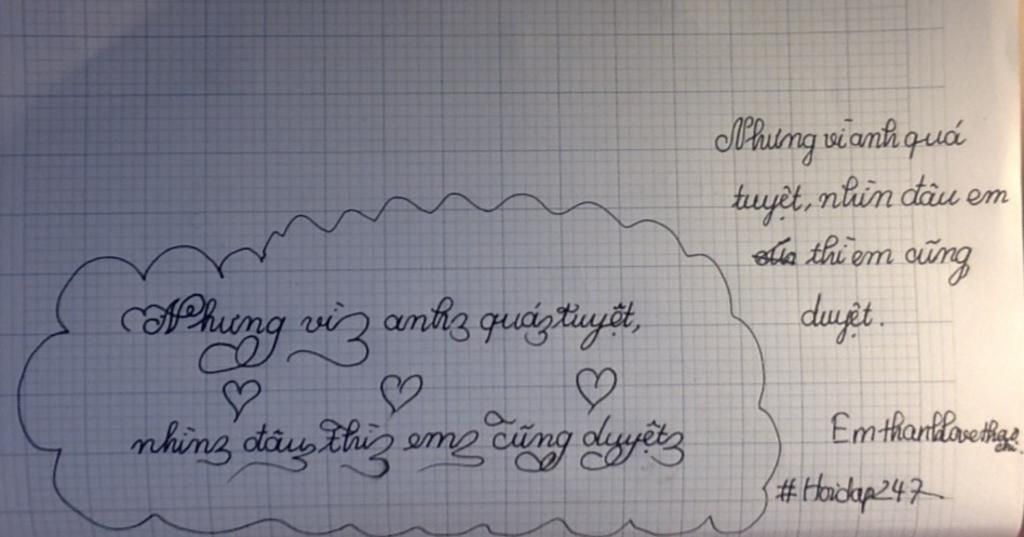 Nhưng vì anh quá
tuyệt, nhìn đâu em
thì em cũng
duyệt.
Nhưng vì anh quá tuyệt,
nhìn đâu thì em cũng duyệt
#Hoidap247